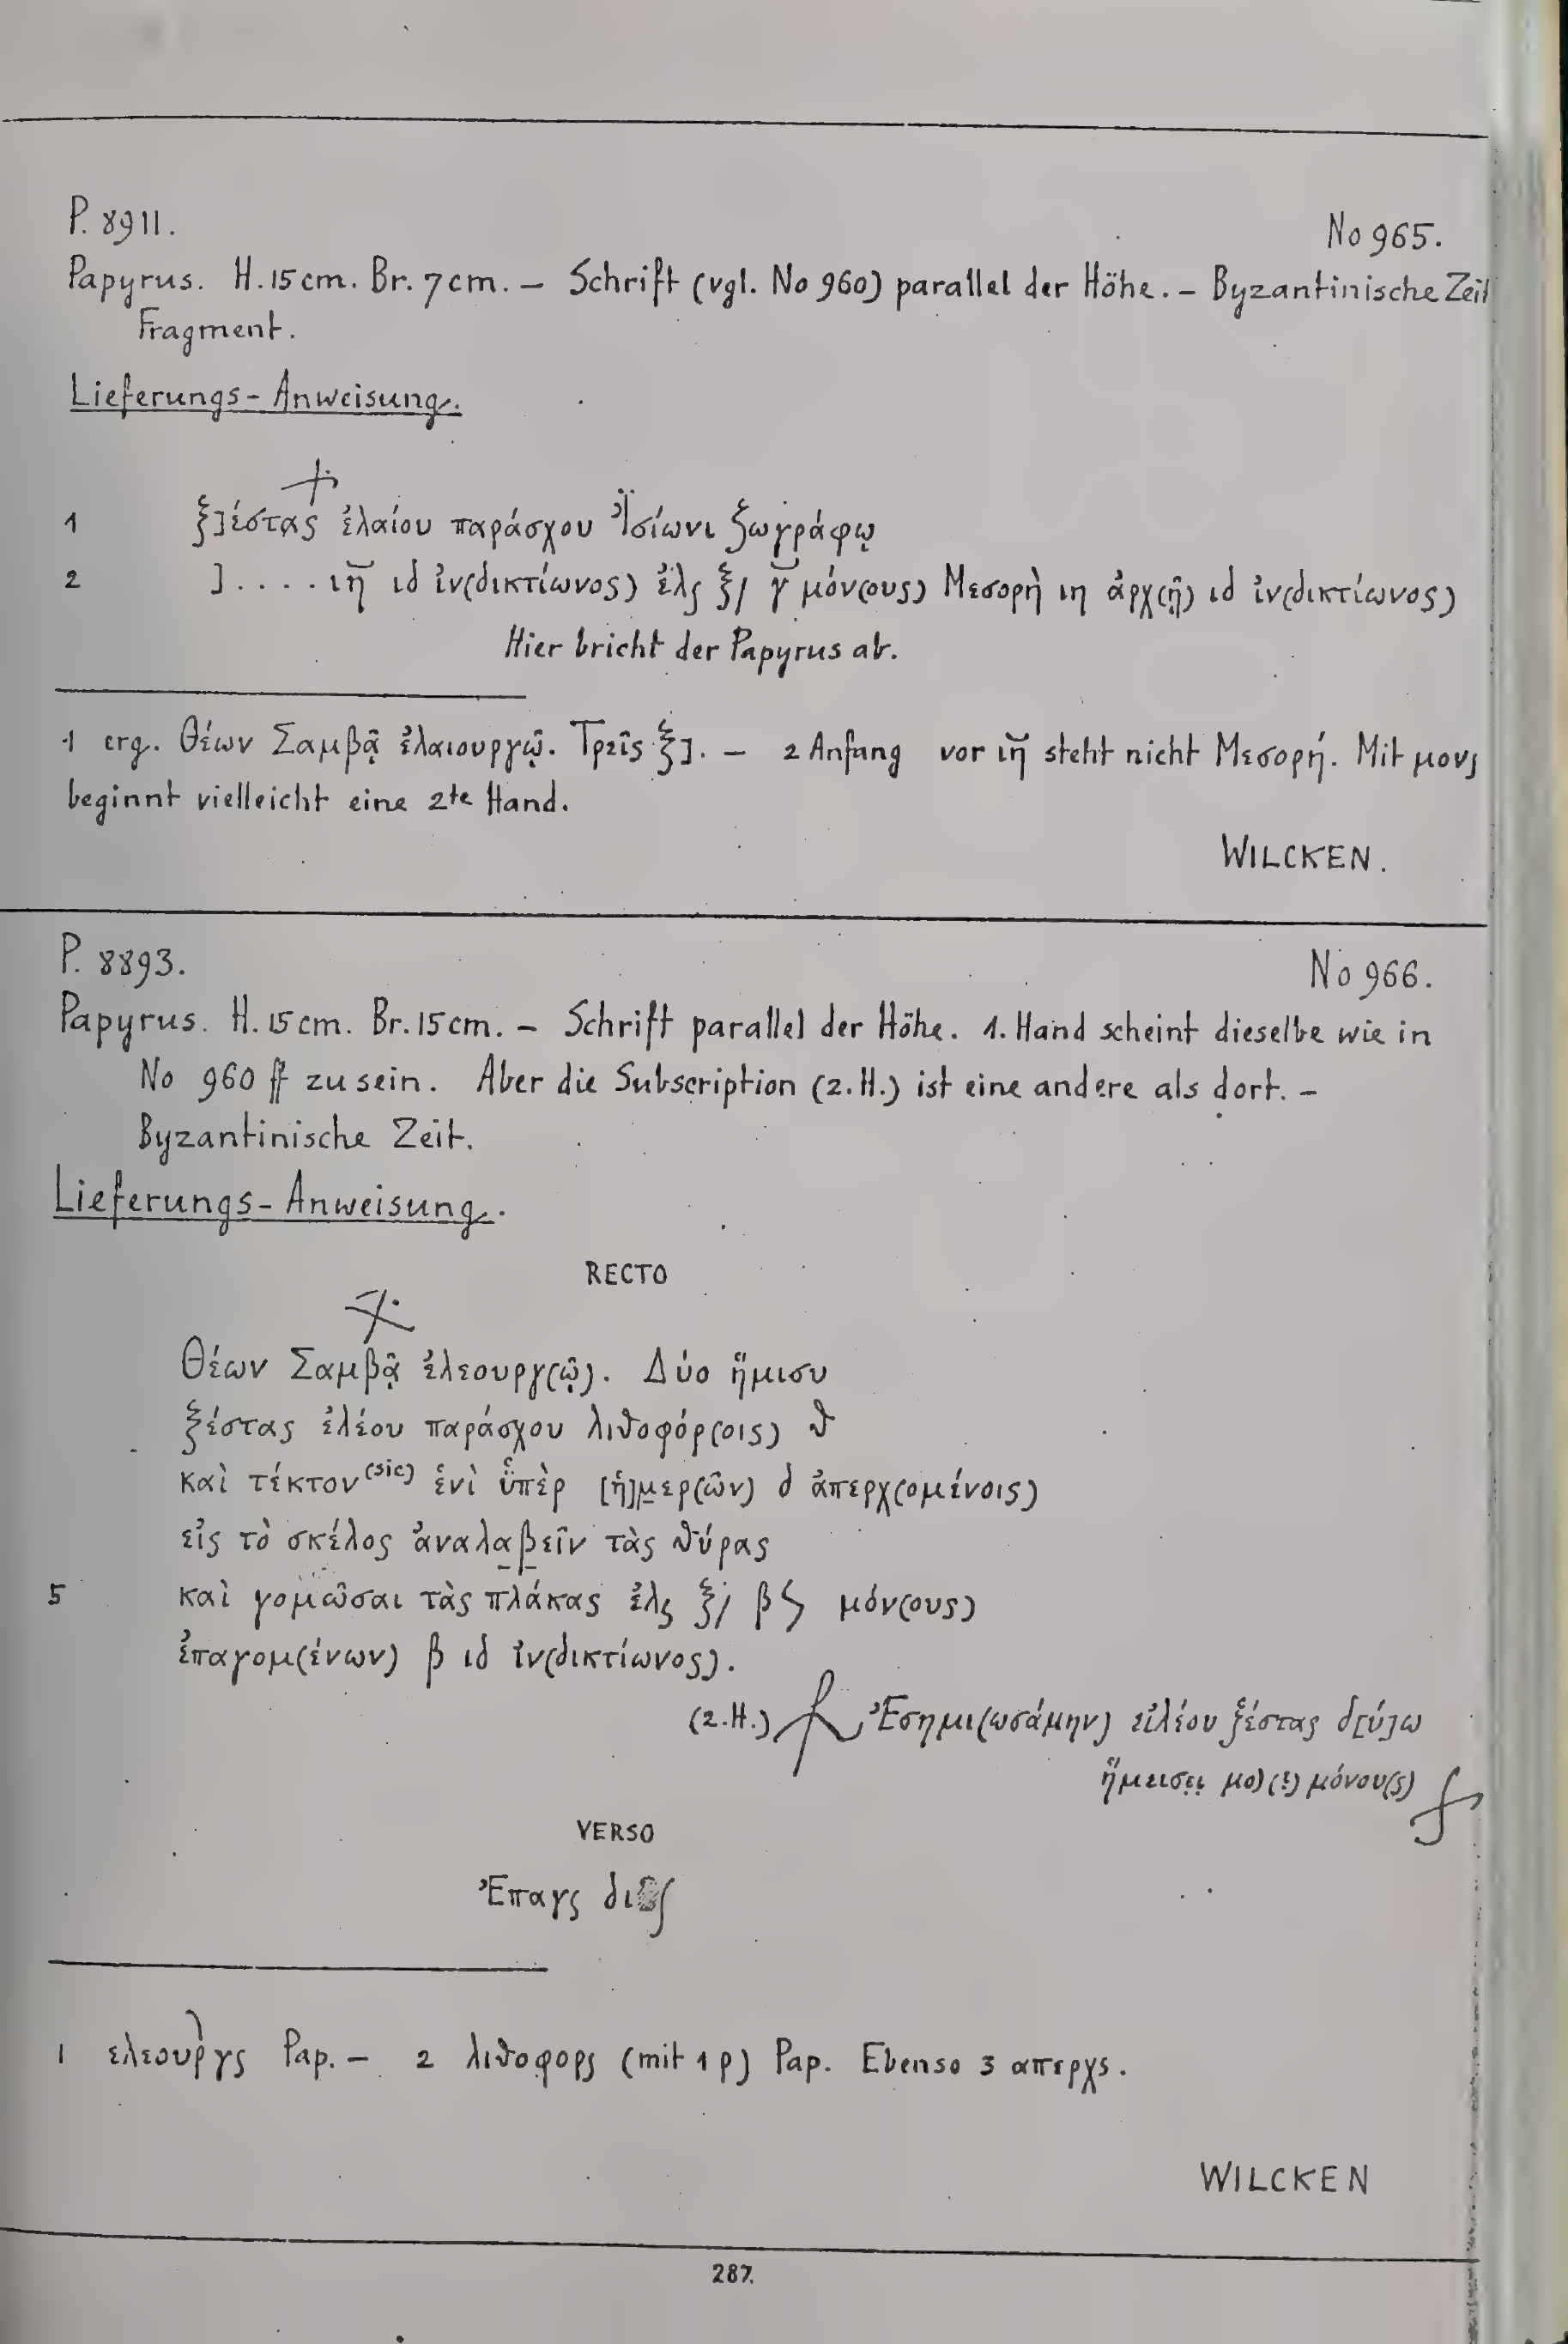 P. 8911.
No 965.
Papyrus. H. 15 cm. Br. 7 cm. – Schrift (vgl. No 960) parallel der Höhe. – Byzantinische Zeit
Fragment.
Lieferungs-Anweisung.
1 ξ]έστας ἐλαίου παράσχου Ἰ̈σίωνι ζωγράφῳ
2 ]. . . . ιη ιδ ἰν(δικτίωνος) ἐλς ξ/ γ μόν(ους) Μεσορὴ ιη ἀρχ(ῇ) ιδ ἰν(δικτίωνος)
Hier bricht der Papyrus ab.
1 erg. Θέων Σαμβᾷ ἐλαιουργῷ. Τρεῖς ξ]. – 2 Anfang vor ιη steht nicht Μεσορή. Mit μονς
beginnt vielleicht eine 2te Hand.
WILCKEN.
P. 8893.
No 966.
Papyrus. H. 15 cm. Br. 15 cm. – Schrift parallel der Höhe. 1. Hand scheint dieselbe wie in
No 960 ff zu sein. Aber die Subscription (2. H.) ist eine andere als dort. –
Byzantinische Zeit.
Lieferungs-Anweisung.
RECTO
Θέων Σαμβᾷ ἐλεουργ(ῷ). Δύο ἥμισυ
ξέστας ἐλέου παράσχου λιθοφόρ(οις) θ
καὶ τέκτον (sic) ἑνὶ ὑ̈πὲρ [ἡ]μερ(ῶν) δ ἀπερχ(ομένοις)
εἰς τὸ σκέλος ἀναλαβεῖν τὰς θύρας
5 καὶ γομῶσαι τὰς πλάκας ἐλς ξ/ βϚ μόν(ους)
ἐπαγομ(ένων) β ιδ ἰν(δικτίωνος).
(2. H.) Ἐσημι(ωσάμην) εἰλέου ξέστας δ[ύ]ω
ἥμεισει μο)(!) μόνου(ς)
VERSO
Ἐπαγς
1 ελεουργς Pap. – 2 λιθοφορς (mit 1 ρ) Pap. Ebenso 3 απερχς.
WILCKEN
287.